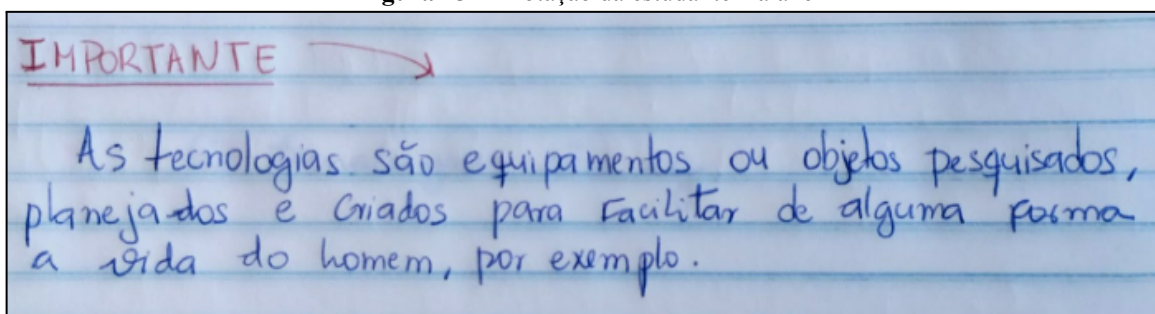 IMPORTANTE
As tecnologias são equipamentos ou objetos pesquisados,
planejados e criados para facilitar de alguma forma
a vida do homem, por exemplo.